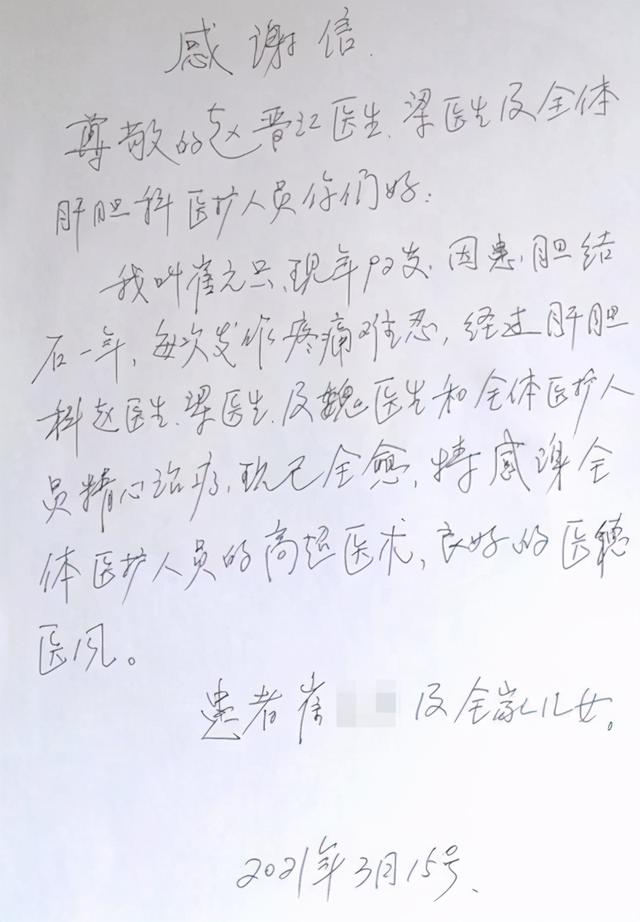 感谢信.
尊敬的赵晋江医生.梁医生及全体
肝胆科医护人员你们好:
我叫崔元只,现年92岁.因患胆结
石一年,每次发作疼痛难忍,经过肝胆
科赵医生.梁医生.及魏医生和全体医护人
员精心治疗,现已全愈,特感谢全
体医护人员的高超医术,良好的医德
医风。
患者崔 及全家儿女。
2021年3月15号、